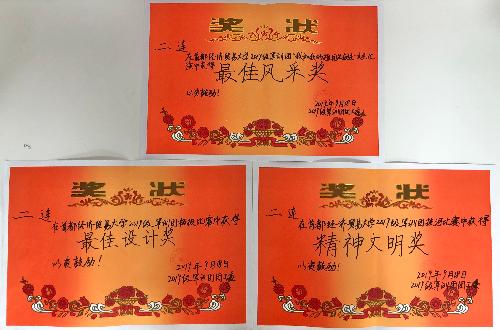 奖状
二连
在首都经济贸易大学2019级军训团
演中获得
最佳风采奖
以资鼓励!
2019年9月18日
2019级军训团团工委
奖状
二连
在首都经济贸易大学2019级军训团板报比赛中获得
最佳设计奖
以资鼓励!
2019年9月18日
2019级军训团团工委
奖状
二连
在首都经济贸易大学2019级军训团拔河比赛中获得
精神文明奖
以资鼓励!
2019年9月18日
2019级军训团团工委